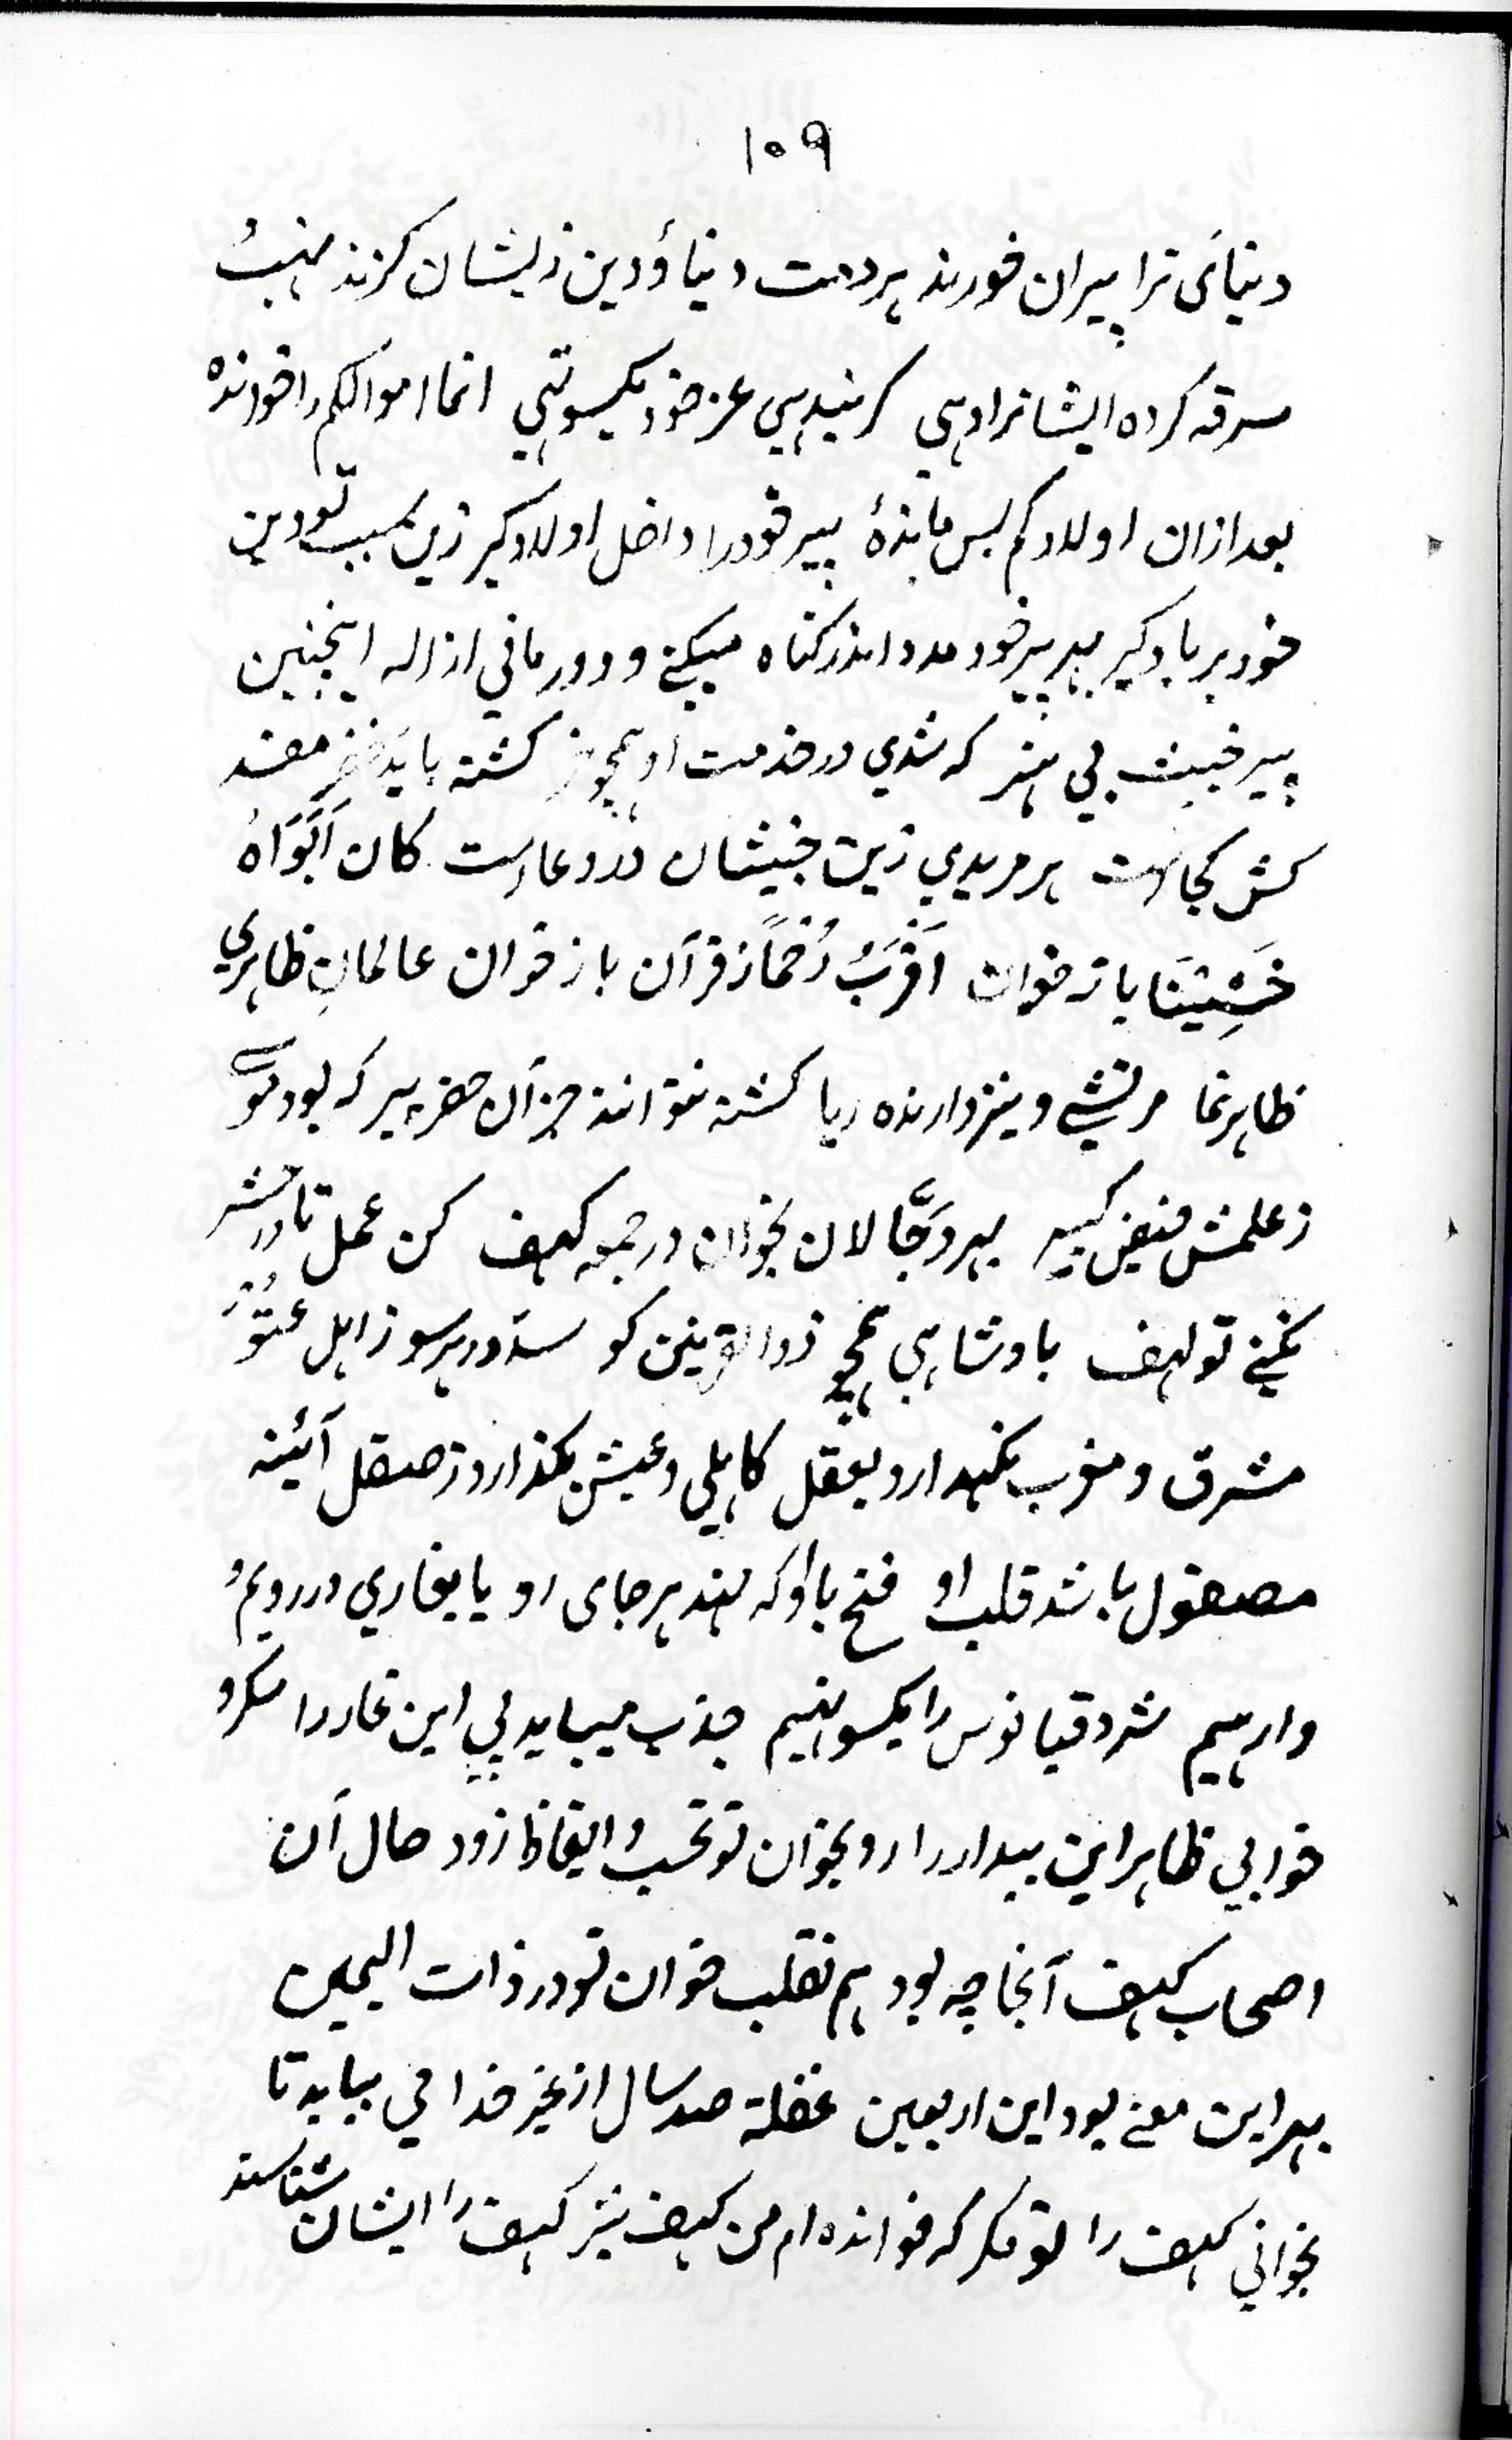 ۱۰۹
دنیائی ترا پیران خورند بردمت دنیا ؤ دین زیشان گزند
سرقه کرده ایشانرا دهی کر ندهی عز خود یکسو نهی انما اموالکم را خوانده
بعد ازان اولادکم پس ماندهٔ پیر خود را داخل اولاد گیر زین سبب تو دین
خود برباد گیر بهر پیر خود مدد اندر گناه میکنی و دور مانی از اله اینچنین
پیر خبیث بی هنر که شدی در خدمت او همچو خر کشته باید خضر مفسد
کش کجاست هر مریدی زین خبیثان در دعاست کان اَبَوَاهُ
خَشِیْنَا باز خوان اَقْرَبُ رُحْمًا ز قرآن باز خوان عالمانِ ظاهری
ظاهرنما مرتشی و نیز دارنده ریا کشته نتوانند جز آن خضر پیر که بود موسی
ز علمش فیض گیر بهر دَجَّالان بخوان در جمعه کهف کن عمل تا در حشر
نکنی تو لهف بادشاهی همچو ذوالقرنین کو سد در هر سو ز اهل عتو
مشرق و مغرب نگهدارد بعقل کاهلی و عیش بگذارد ز صقل آئینه
مصقول باشد قلب او فتح با او که نهد هر جای رو یا بغاری در رویم
وارهیم شر دقیانوس را یکسو نهیم جذب میباید پی این غار را منکر و
خوابی ظاهر این بیدار را رو بخوان تو تحسب و ایقاظ زود حال آن
اصحاب کهف آنجا چه بود هم نقلب خوان تو در ذات الیمین
بهر این معنی بود این اربعین غفلة صد سال از غیر خدا می بباید تا
بخوانی کهف را تو مگر که خوانده ام من کهف نیز کهف را ایشان شناسند